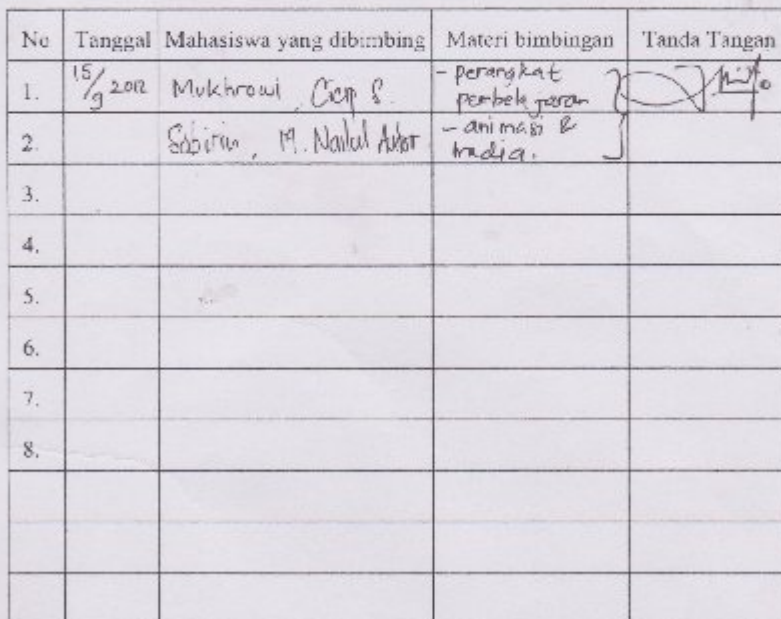 No Tanggal Mahasiswa yang dibimbing Materi bimbingan Tanda Tangan
1. 15/9 2012 Mukhrowi, Cicip S. - perangkat pembelajaran
2. Sabirin, M. Nailul - animasi & media.
3.
4.
5.
6.
7.
8.